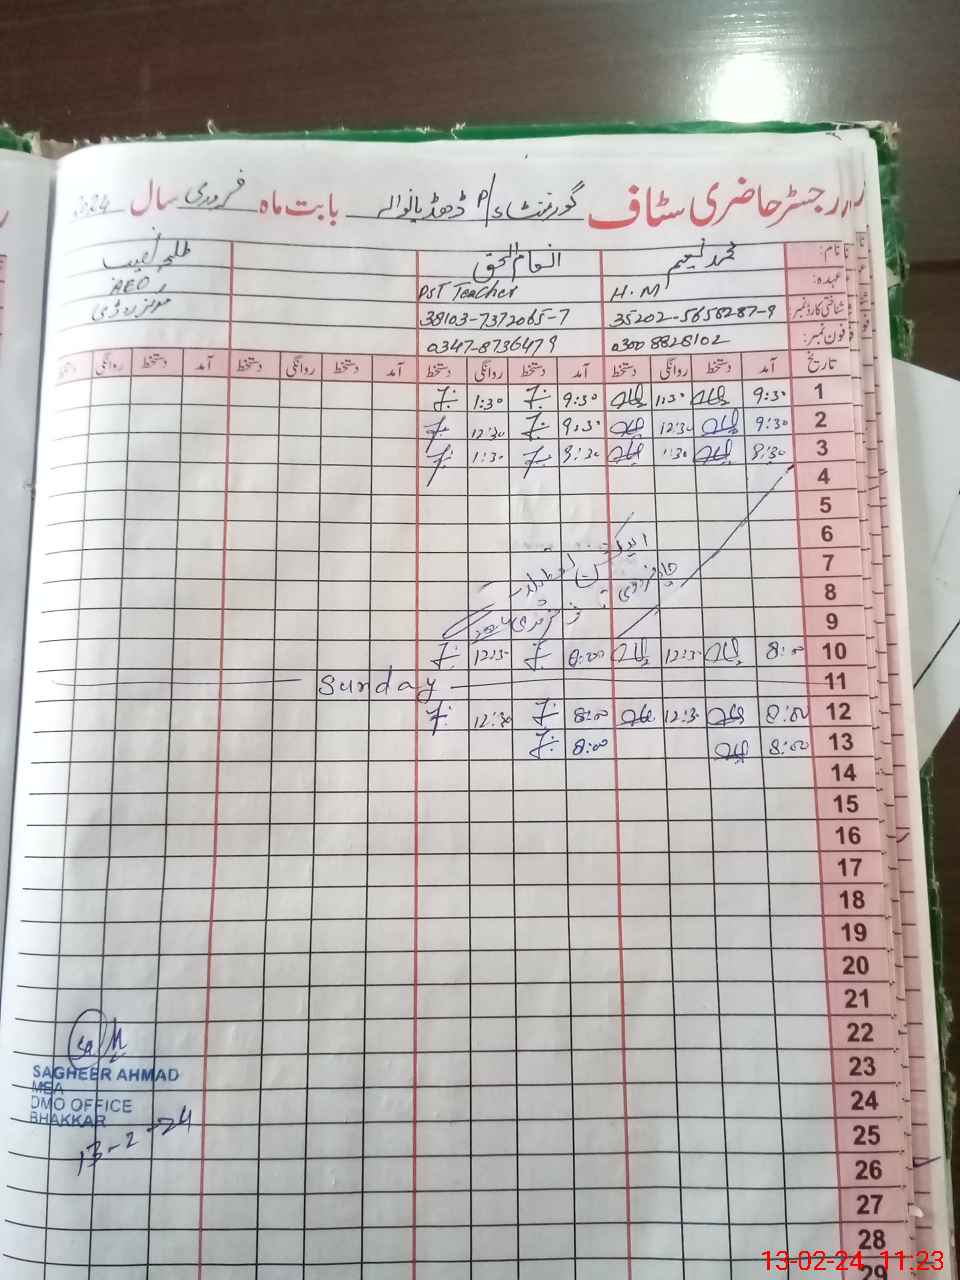 رجسٹر حاضری سٹاف گورنمنٹ P/S ڈھڈیانوالہ بابت ماہ فروری سال 2024
نام: محمد نعیم انعام الحق
عہدہ: H.M PST Teacher AEO
شناختی کارڈ نمبر: 35202-5658287-9 38103-7372065-7
فون نمبر: 0300 8828102 0347-8736479
تاریخ آمد دستخط روانگی دستخط آمد دستخط روانگی دستخط آمد دستخط روانگی دستخط آمد دستخط روانگی دستخط
1 9:30 1:30 9:30 1:30
2 9:30 12:30 9:30 12:30
3 8:30 1:30 8:30 1:30
4
5
6
7
8
9
10 8:00 12:30 8:00 12:30
11 Sunday
12 8:00 12:30 8:00 12:30
13 8:00 8:00
14
15
16
17
18
19
20
21
22
23
24
25
26
27
28
29
SAGHEER AHMAD
MEA
DMO OFFICE
BHAKKAR
13-2-24
13-02-24 11:23